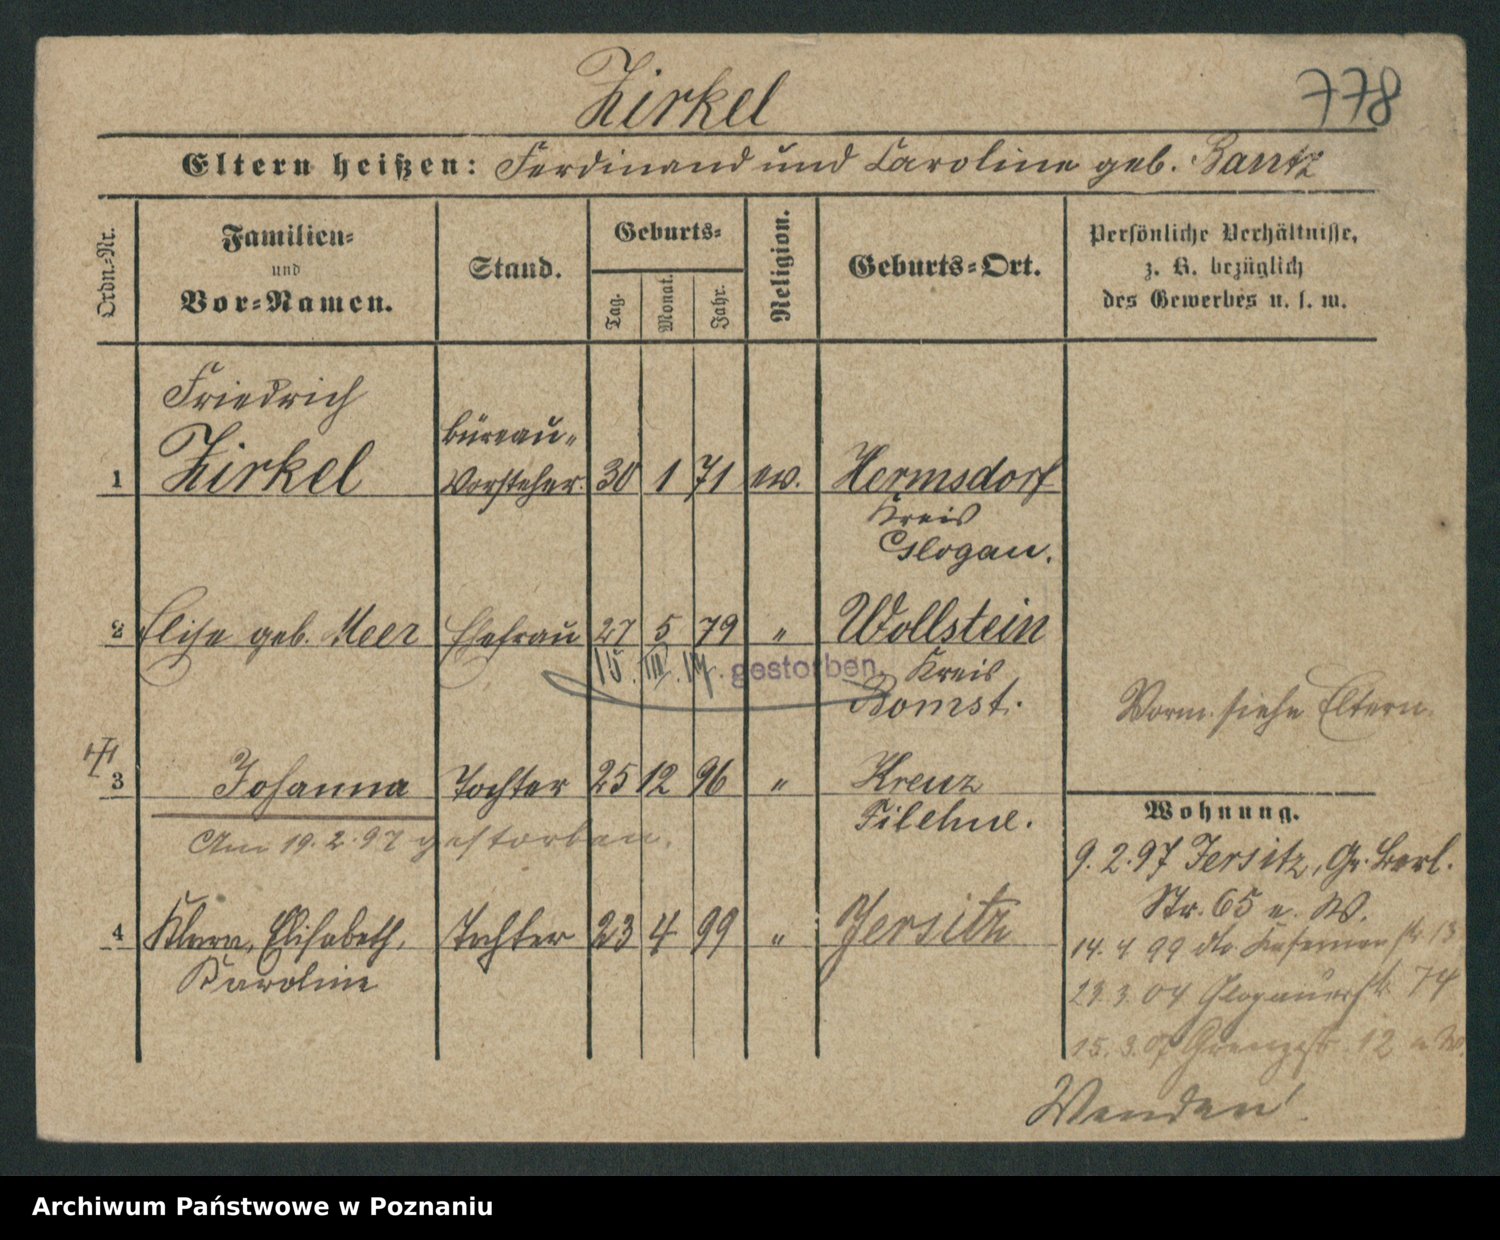 Zirkel
778
Eltern heißen: Ferdinand und Caroline geb. Bantz
Ordn.-Nr.
Familien-
und
Vor-Namen.
Stand.
Geburts-
Tag.
Monat.
Jahr.
Religion.
Geburts-Ort.
Persönliche Verhältnisse,
z. B. bezüglich
des Gewerbes u. s. w.
Friedrich
büreau-
1 Zirkel Vorsteher 30 1 71 ev. Hermsdorf
Kreis
Glogau.
2 Elise geb. Meer Ehefrau 27 5 79 " Wollstein
15. III. 17. gestorben.
Kreis
Bomst.
Vorm. siehe Eltern.
3 Johanna Tochter 25 12 96 " Kreuz
Filehne.
Am 19. 2. 97 gestorben.
Wohnung.
9. 2. 97 Jersitz, Gr. Berl.
Str. 65 e. W.
4 Klara, Elisabeth, Tochter 23 4 99 " Jersitz
Karoline
14. 4 99 dto Kasernen str 13
23. 3. 04 Glogauerstr. 74
15. 3. 07 Grenzstr. 12
Wenden!
Archiwum Państwowe w Poznaniu